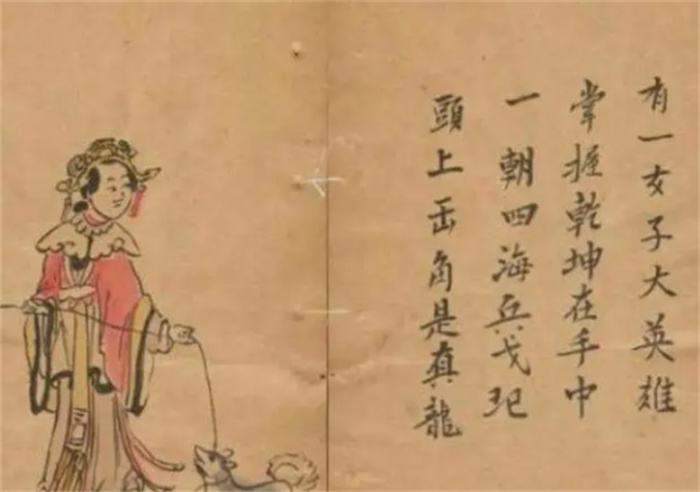 有一女子大英雄
掌握乾坤在手中
一朝四海兵戈
頭上缶角是真龍